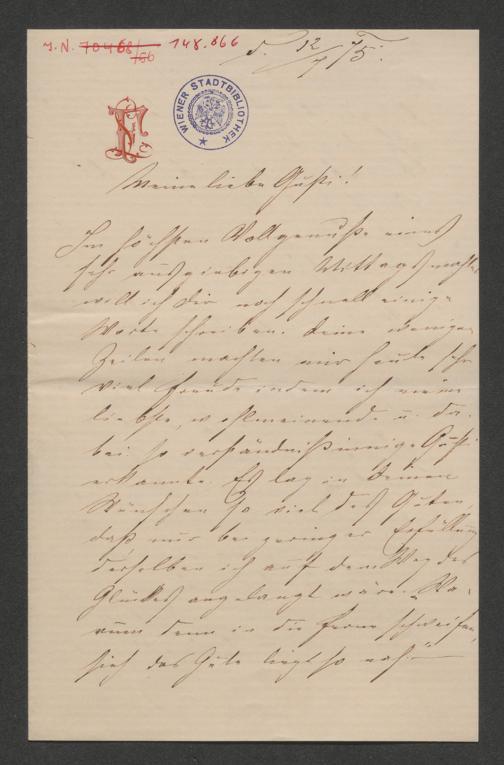 J. N. 70468/766 148.866
d. 12/7 75.
WIENER STADTBIBLIOTHEK
Meine liebe Gusti!
Im höchsten Vollgenuße eines
sehr ausgiebigen Mittagsmahles
will ich Dir noch schnell einige
Worte schreiben. Deine wenigen
Zeilen machten mir heute sehr
viel Freude indem ich meine
liebste, wohlmeinende u. da-
bei so verständnißinnige Gusti
erkannte. Es lag in Deinen
Wünschen so viel des Guten,
daß nur bei geringer Erfüllung
derselben ich auf dem Weg des
Glückes angelangt wäre. „Wa-
rum denn in die Ferne schweifen,
sieh das Gute liegt so nah!“